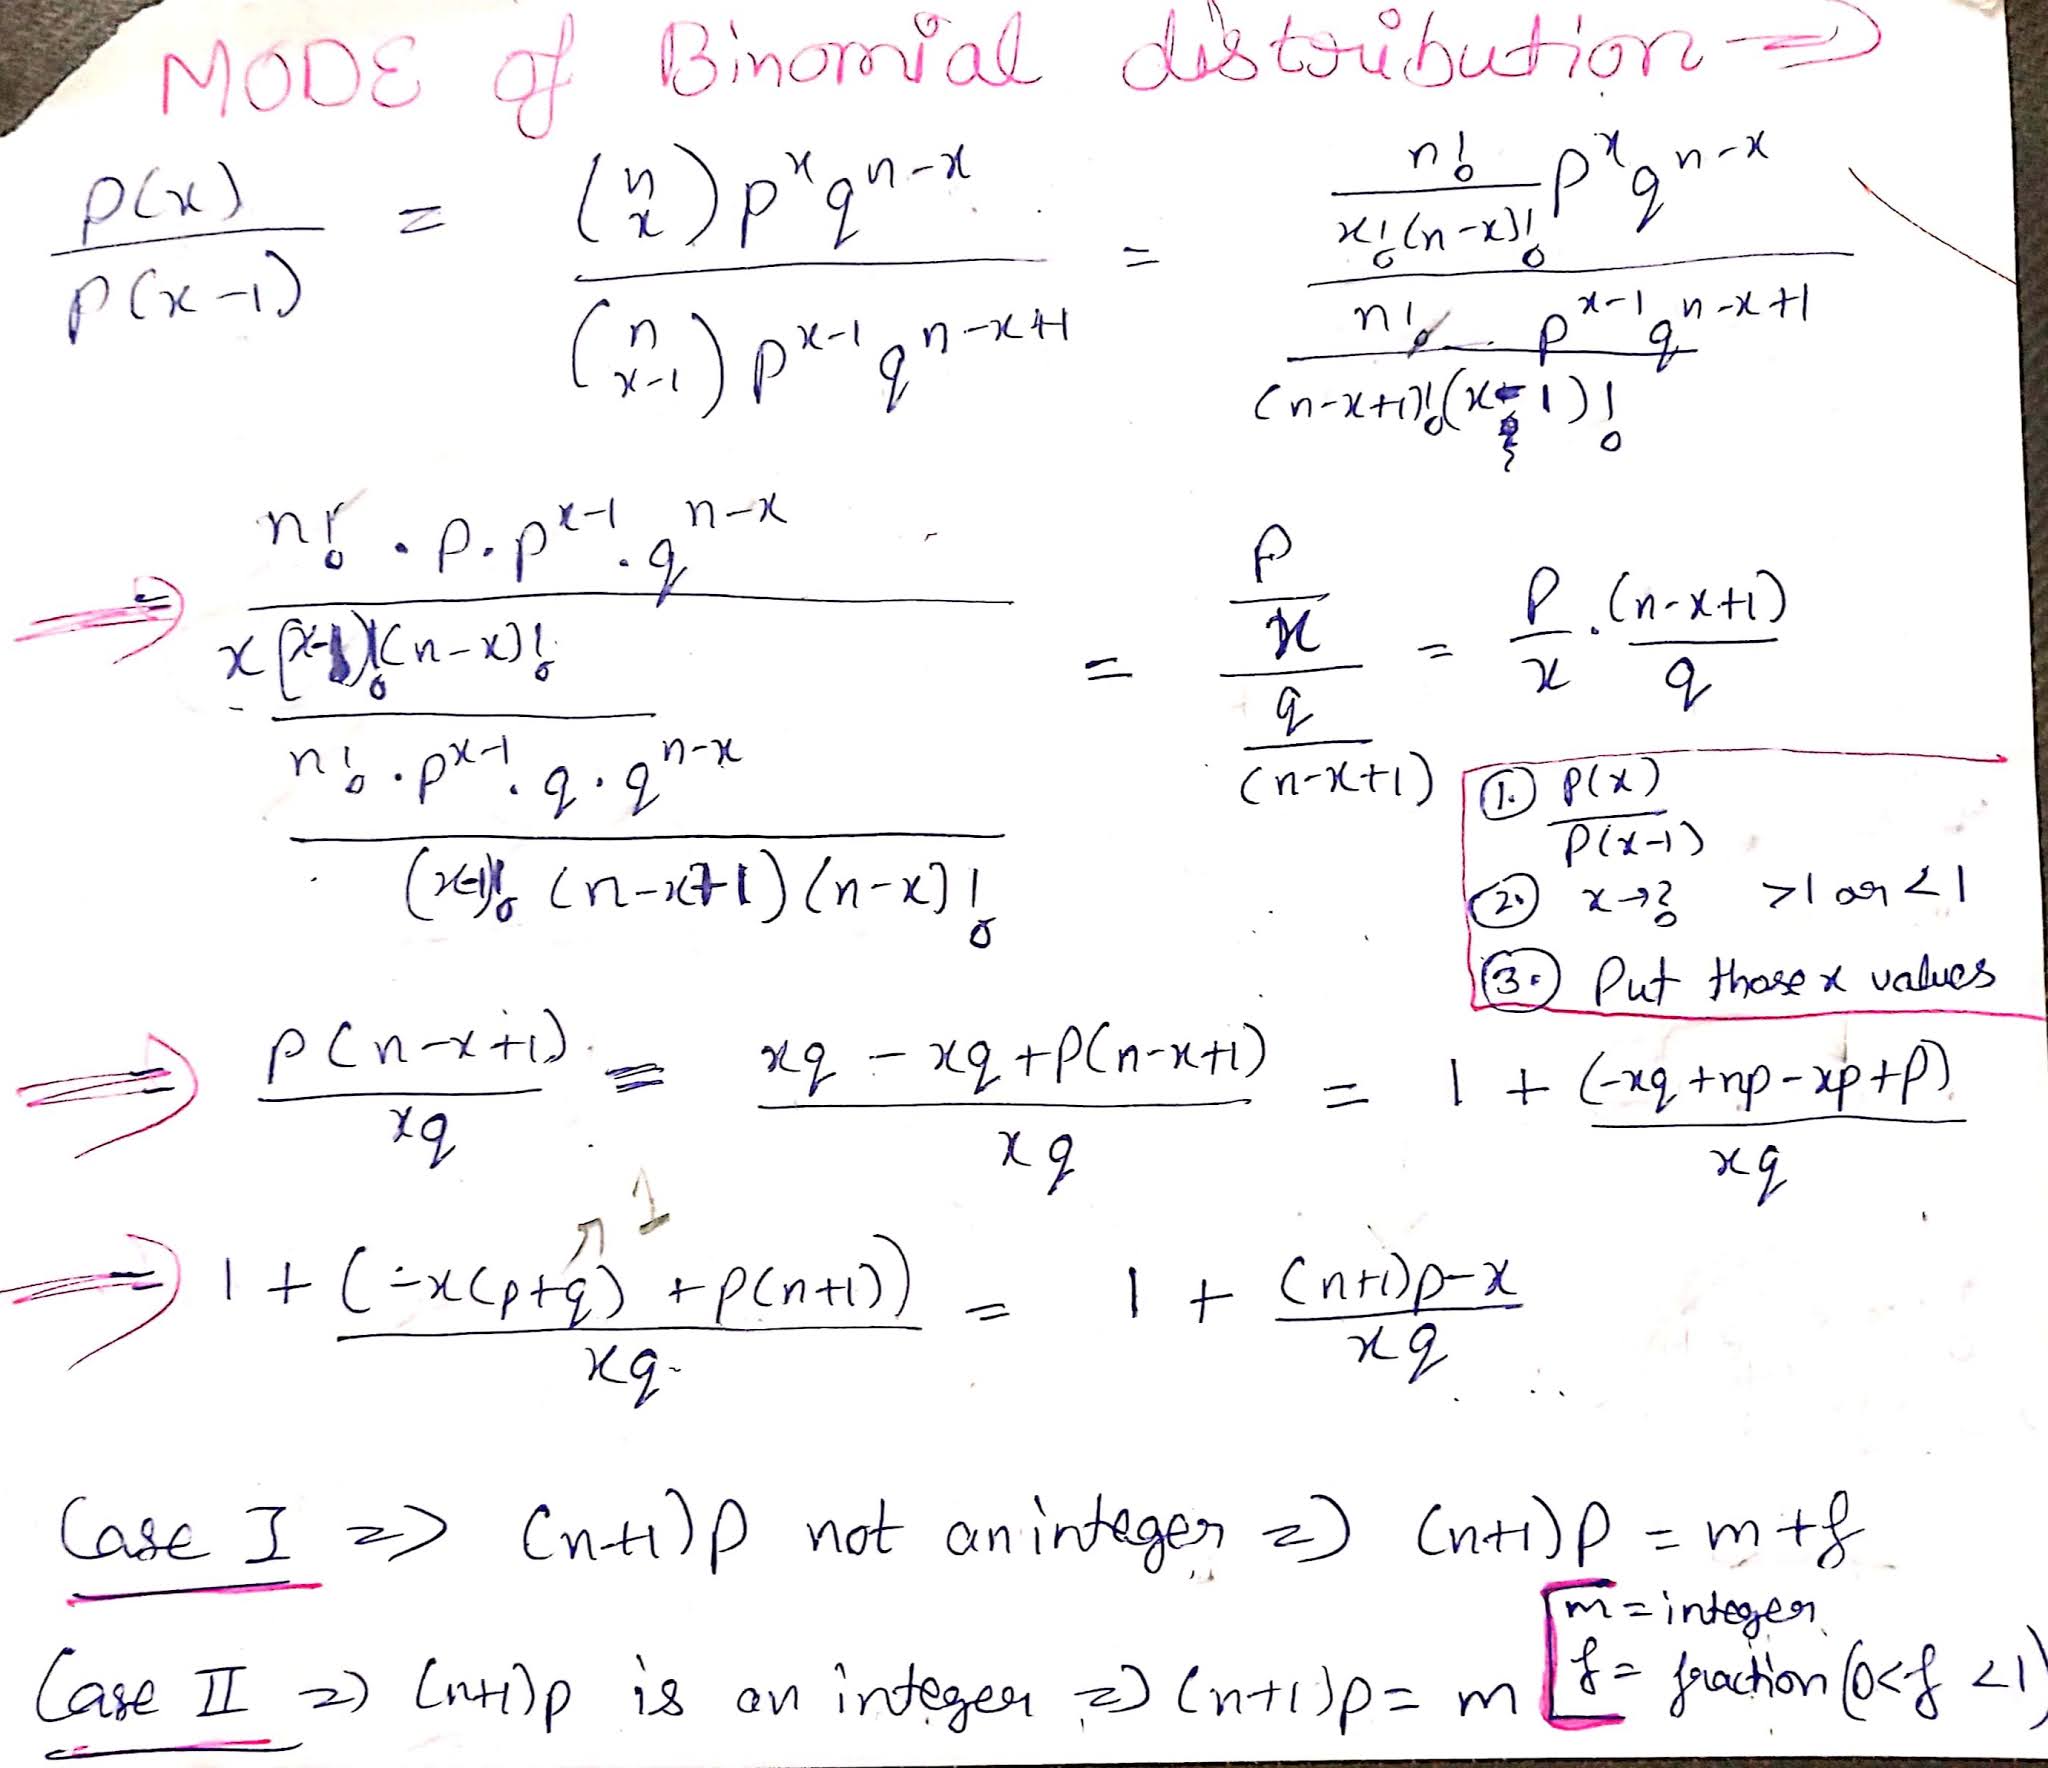 MODE of Binomial distribution ⇒
P(x) / P(x-1) = (n x) p^x q^(n-x) / (n x-1) p^(x-1) q^(n-x+1) = n!/(x!(n-x)!) p^x q^(n-x) / n!/((n-x+1)!(x-1)!) p^(x-1) q^(n-x+1)
⇒ = n! . p . p^(x-1) . q^(n-x) / x(x-1)!(n-x)! / n! . p^(x-1) . q . q^(n-x) / (x-1)! (n-x+1) (n-x)! = p/x / q/(n-x+1) = p/x . (n-x+1)/q
① P(x)/P(x-1)
② x→? >1 or <1
③ Put those x values
⇒ = p(n-x+1) / xq = xq - xq + p(n-x+1) / xq = 1 + (-xq + np - xp + p) / xq
1
⇒ = 1 + (-x(p+q) + p(n+1)) / xq = 1 + (n+1)p-x / xq
Case I ⇒ (n+1)p not an integer ⇒ (n+1)p = m + f
m = integer
Case II ⇒ (n+1)p is an integer ⇒ (n+1)p = m
f = fraction (0<f<1)